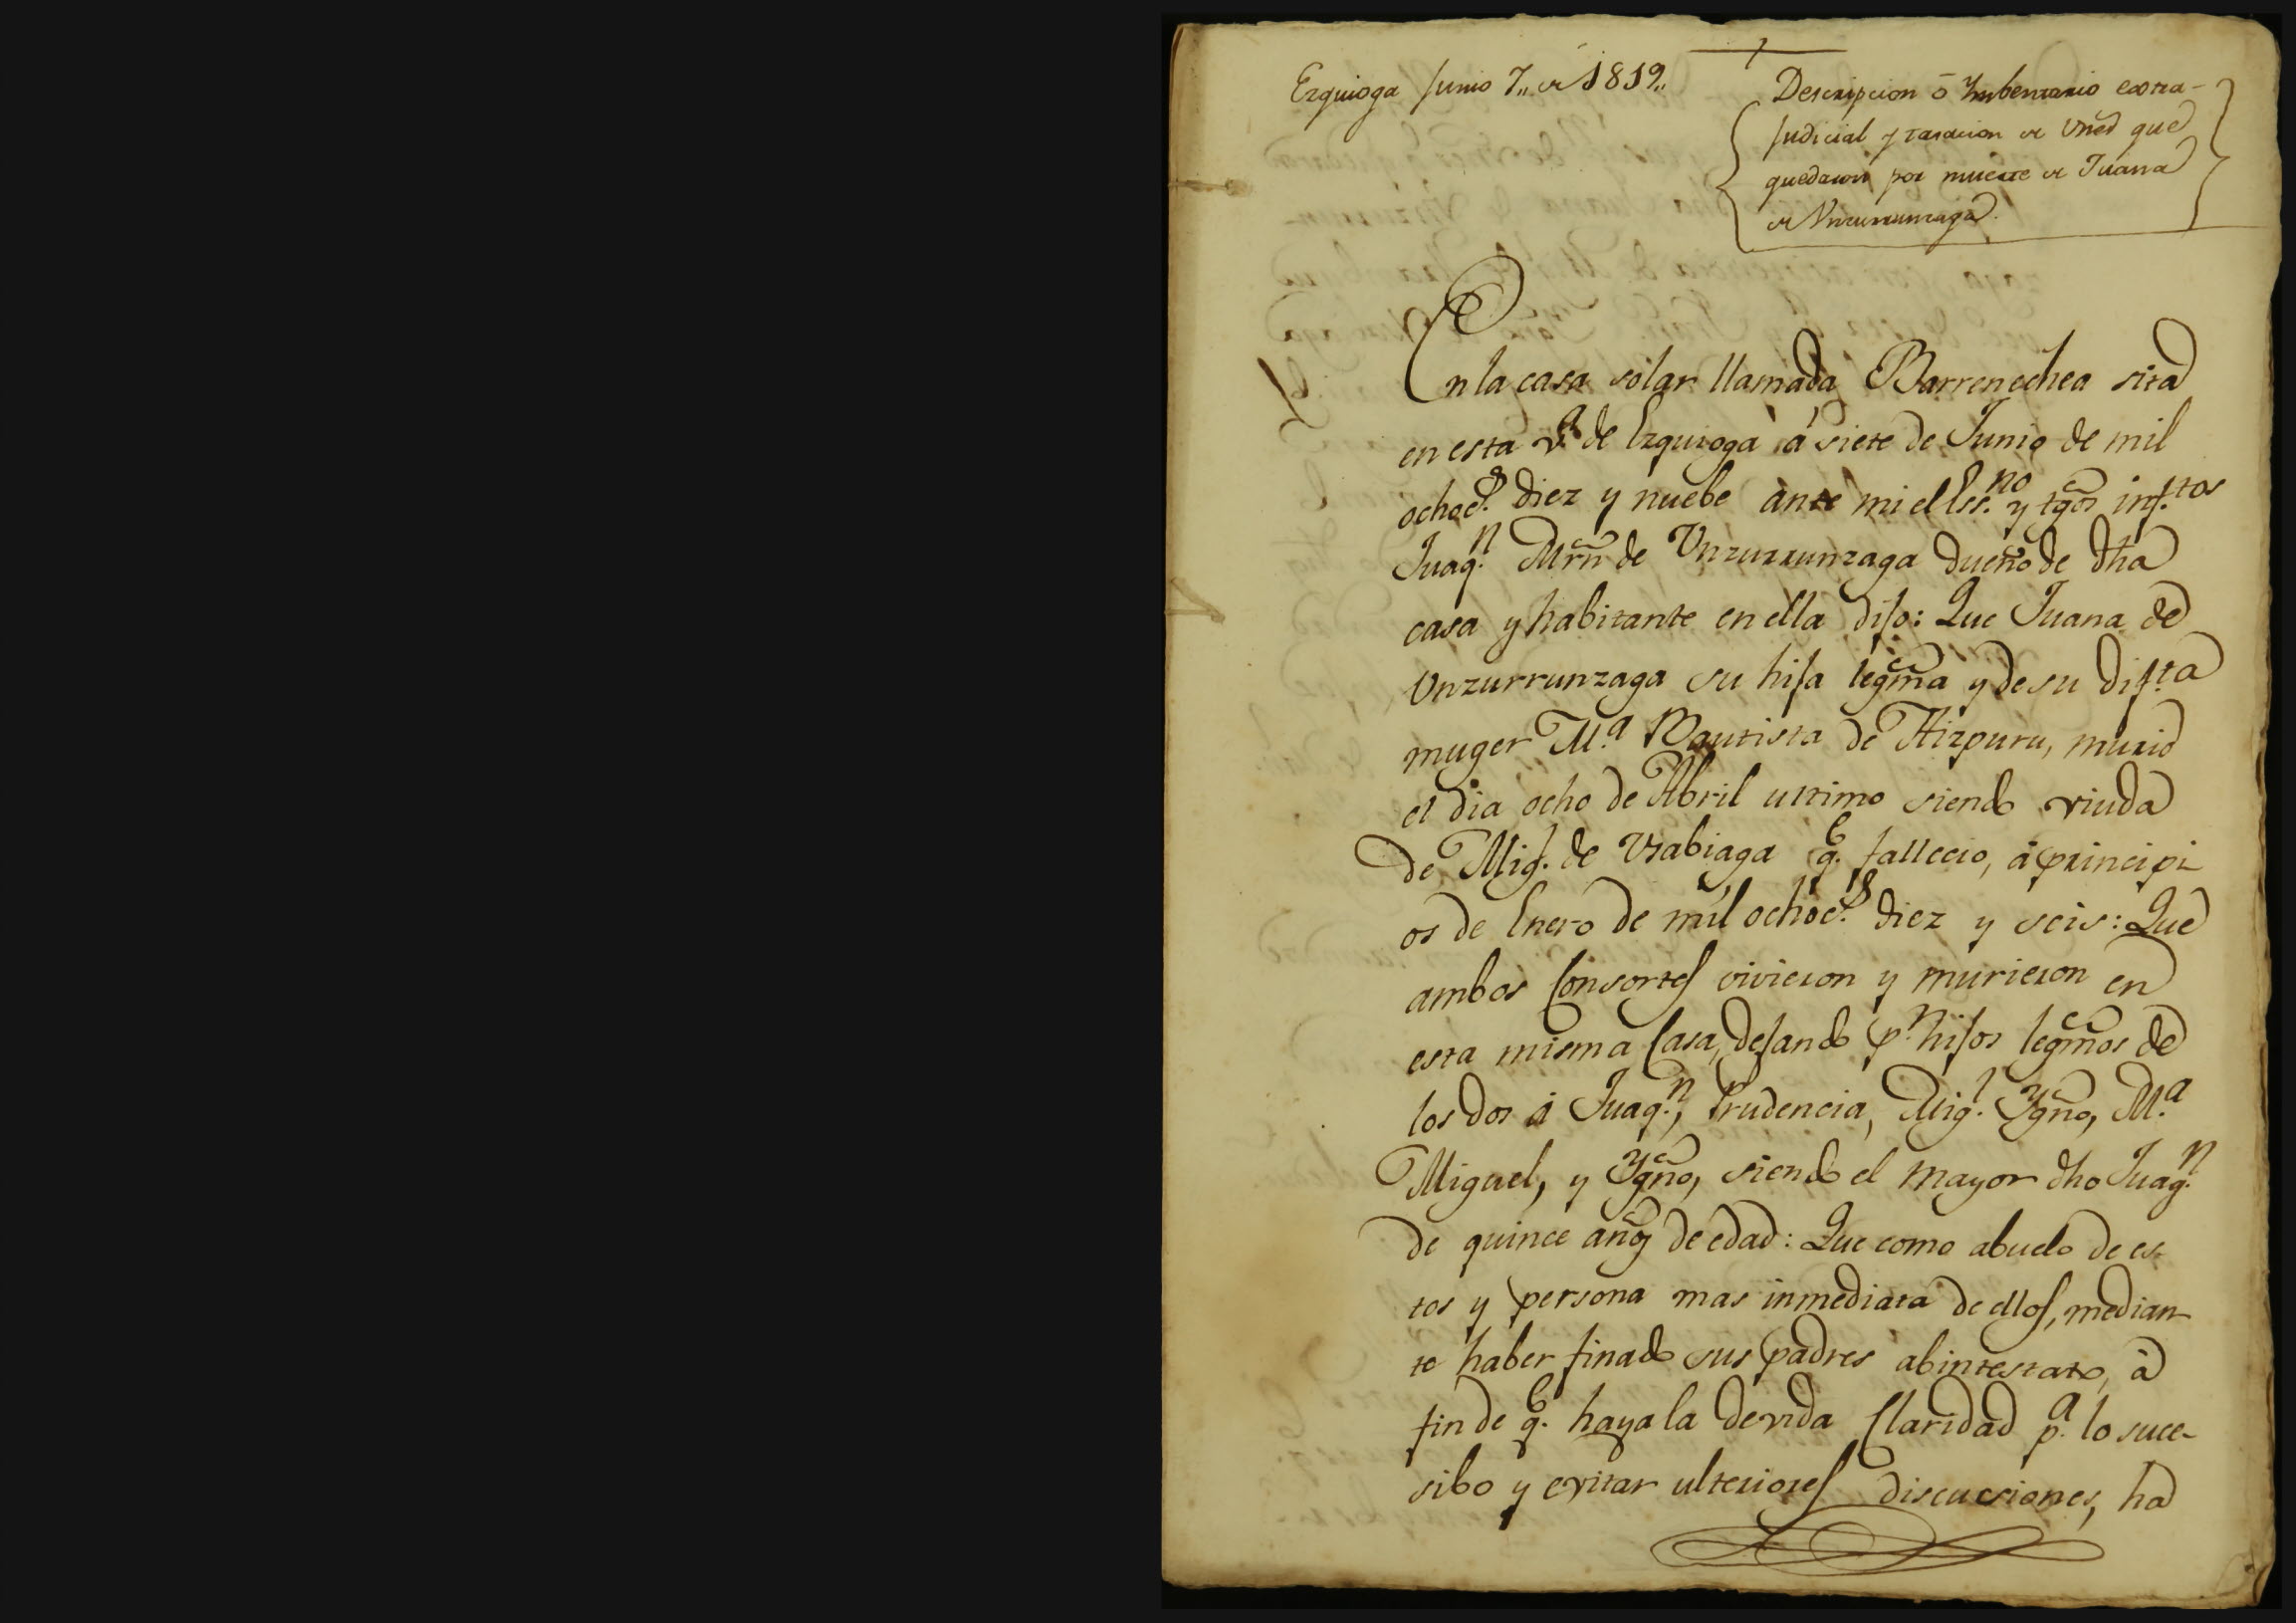 Ezquioga Junio 7,, de 1819,,
Descripcion ó Imbentario extra-
judicial y tasacion de vnes que
quedaron por muerte de Juana
de Vnzurrunzaga.
En la casa solar llamada Barrenechea sita
en esta v.ª de Ezquioga á siete de Junio de mil
ochoc.s diez y nuebe ante mi el Ess.no y tgos inf.tos
Juaq.n Mrñ de Vnzurrunzaga dueño de dha
casa y habitante en ella dijo: Que Juana de
Vnzurrunzaga su hija legma y de su dif.ta
muger M.a Bautista de Aizpuru, murió
el dia ocho de Abril ultimo siendo viuda
de Mig.l de Vrabiaga q.e fallecio, á principi-
os de Enero de mil ochoc.s diez y seis: Que
ambos Consortes vivieron y murieron en
esta misma Casa, dejando p.r hijos legmos de
los dos á Juaq.n, Prudencia, Mig.l Ygno, M.a
Miguel, y Ygno, siendo el mayor dho Juaq.n
de quince años de edad: Que como abuelo de es-
tos y persona mas inmediata de ellos, median-
te haber finado sus padres abintestato, á
fin de q.e haya la devida Claridad p.a lo suce-
sibo y evitar ulteriores discuciones, ha